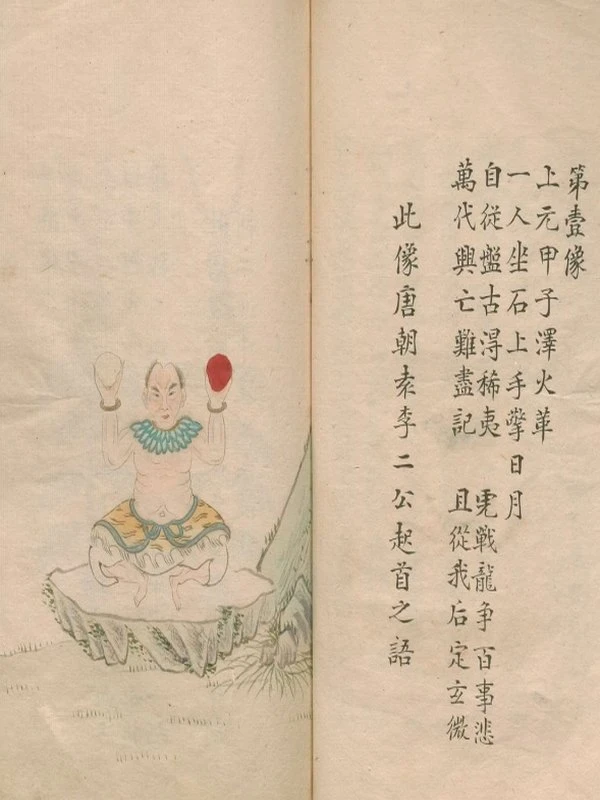 第壹像
上元甲子澤火革
一人坐石上手擎日月
自從盤古淂稀夷　虎戰龍争百事悲
萬代興亡難盡記　且從我后定玄微
此像唐朝袁李二公起首之語